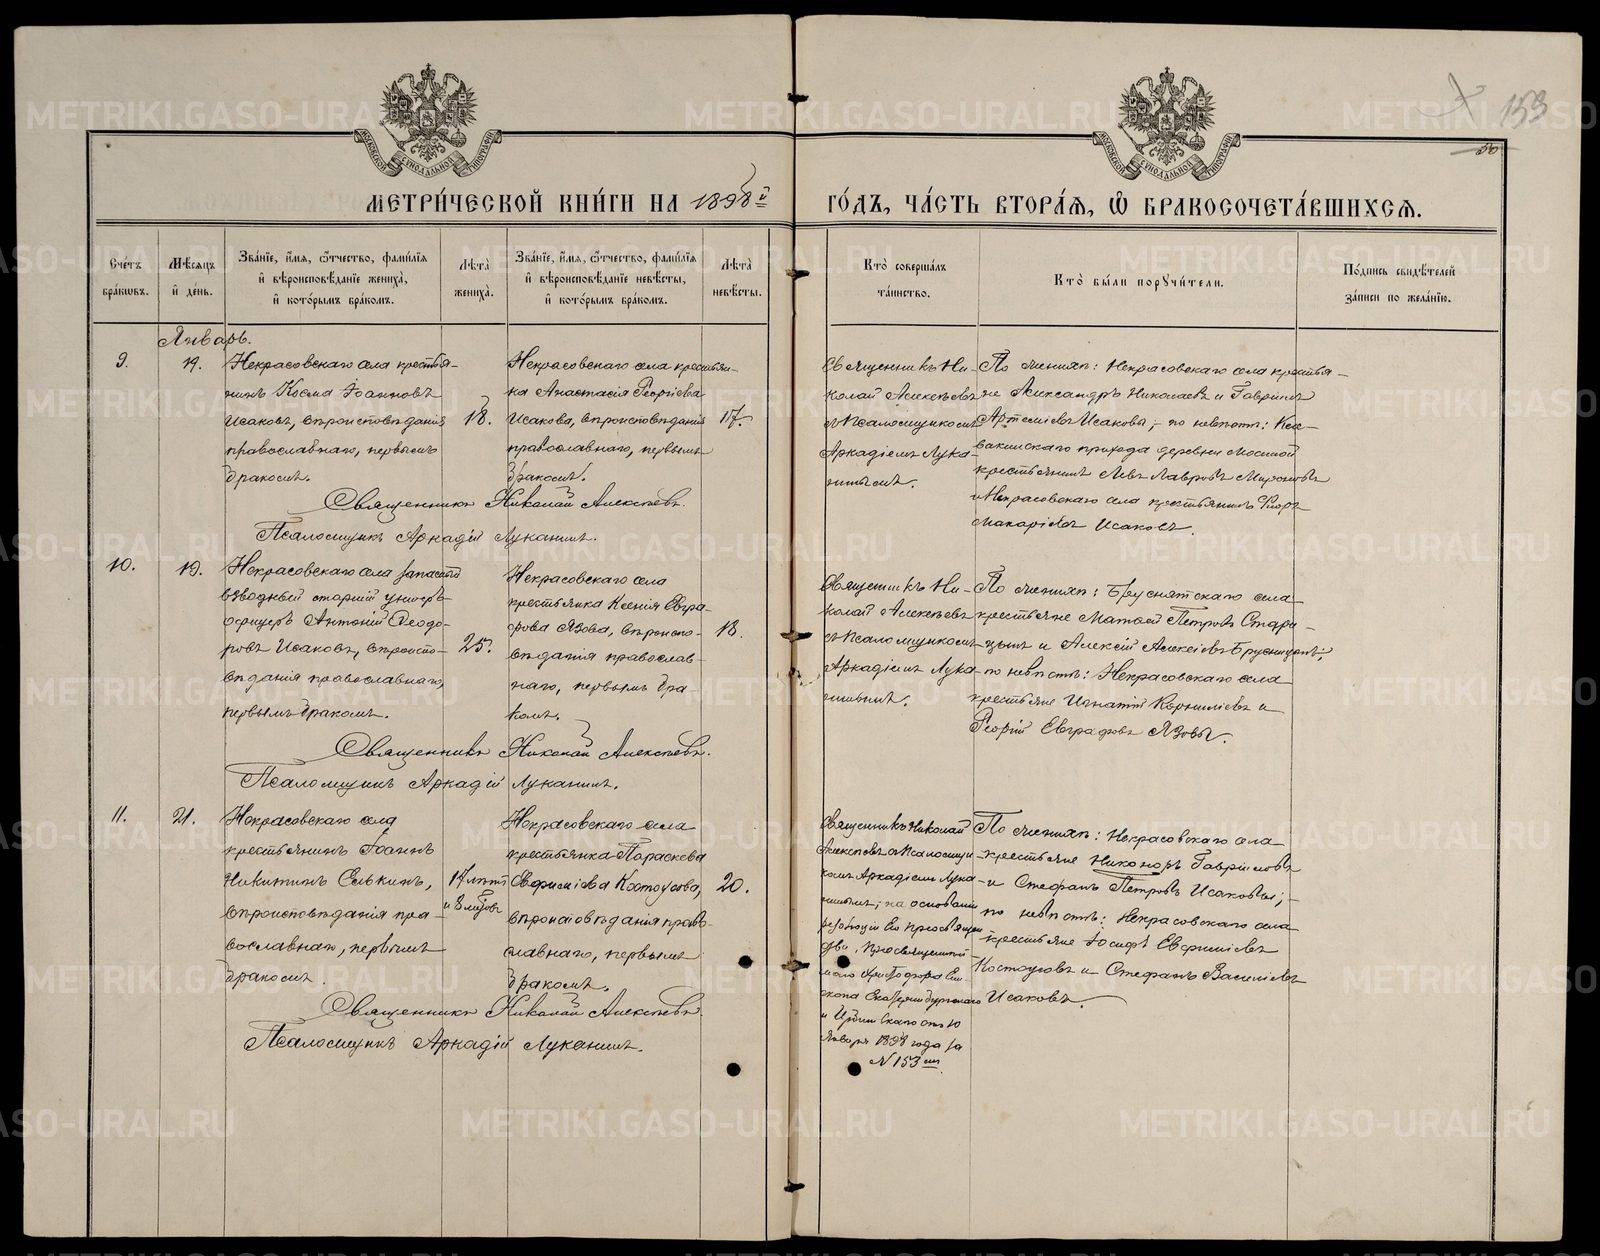 153
50
МЕТРИ́ЧЕСКОЙ КНИ́ГИ НА 1898й ГО́ДЪ, ЧА́СТЬ ВТОРА́Я, Ѽ БРАКОСОЧЕТА́ВШИХСЯ.
Сче́тъ бра́ковъ.
Мѣ́сяцъ и҆ де́нь.
Зва́нїе, и҆́мя, ѻ҆́тчество, фами́лїя и҆ вѣроисповѣ́данїе жениха̀, и҆ кото́рымъ бра́комъ.
Лѣ́та жениха̀.
Зва́нїе, и҆́мя, ѻ҆́тчество, фами́лїя и҆ вѣроисповѣ́данїе невѣ́сты, и҆ кото́рымъ бра́комъ.
Лѣ́та невѣ́сты.
Кто̀ соверша́лъ та́инство.
Кто̀ бы́ли порꙋчи́тели.
По́дпись свидѣ́телей за́писи по жела́нїю.
Январь.
9.
19.
Некрасовскаго села крестья-
нинъ Косма Іоанновъ
Исаковъ, вѣроисповѣданія
православнаго, первымъ
бракомъ.
18.
Некрасовскаго села крестьян-
ка Анастасія Георгіева
Исакова, вѣроисповѣданія
православнаго, первымъ
бракомъ.
17.
Священникъ Ни-
колай Алексѣевъ
съ Псаломщикомъ
Аркадіемъ Лука-
нинымъ.
По женихѣ: Некрасовскаго села крестья-
не Александръ Николаевъ и Гавріилъ
Артеміевъ Исаковы; по невѣстѣ:
прихода деревни
крестьянинъ Левъ Лавровъ Мироновъ
и Некрасовскаго села крестьянинъ
Макаріевъ Исаковъ.
Священникъ Николай Алексѣевъ.
Псаломщикъ Аркадій Луканинъ.
10.
19.
Некрасовскаго села запасный
взводный старшій унтеръ-
офицеръ Антоній Ѳеодо-
ровъ Исаковъ, вѣроиспо-
вѣданія православнаго,
первымъ бракомъ.
25.
Некрасовскаго села
крестьянка Ксенія Евгра-
фова Язова, вѣроиспо-
вѣданія православ-
наго, первымъ бра-
комъ.
18.
Священникъ Ни-
колай Алексѣевъ
съ Псаломщикомъ
Аркадіемъ Лука-
нинымъ.
По женихѣ: Бруснятскаго села
крестьяне Матѳей Петровъ Стари-
цынъ и Алексій Алексіевъ Брусницынъ;
по невѣстѣ: Некрасовскаго села
крестьяне Игнатій Корниліевъ и
Георгій Евграфовъ Язовы.
Священникъ Николай Алексѣевъ.
Псаломщикъ Аркадій Луканинъ.
11.
21.
Некрасовскаго села
крестьянинъ Іоаннъ
Никитинъ Елькинъ,
вѣроисповѣданія пра-
вославнаго, первымъ
бракомъ.
17 лѣтъ
и 8 мѣсяцовъ
Некрасовскаго села
крестьянка Параскева
Евфиміева Костоусова,
вѣроисповѣданія право-
славнаго, первымъ
бракомъ.
20.
Священникъ Николай
Алексѣевъ съ Псаломщи-
комъ Аркадіемъ Лука-
нинымъ; на основаніи
резолюціи Его Преосвящен-
ства, Преосвященнѣй-
шаго Христофора Епи-
скопа Екатеринбургскаго
и Ирбитскаго отъ 10
Января 1898 года за
№ 153мъ
По женихѣ: Некрасовскаго села
крестьяне Никоноръ Гавріиловъ
и Стефанъ Петровъ Исаковы;
по невѣстѣ: Некрасовскаго села
крестьяне Іосифъ Евфиміевъ
Костоусовъ и Стефанъ Василіевъ
Исаковъ.
Священникъ Николай Алексѣевъ.
Псаломщикъ Аркадій Луканинъ.
METRIKI.GASO-URAL.RU